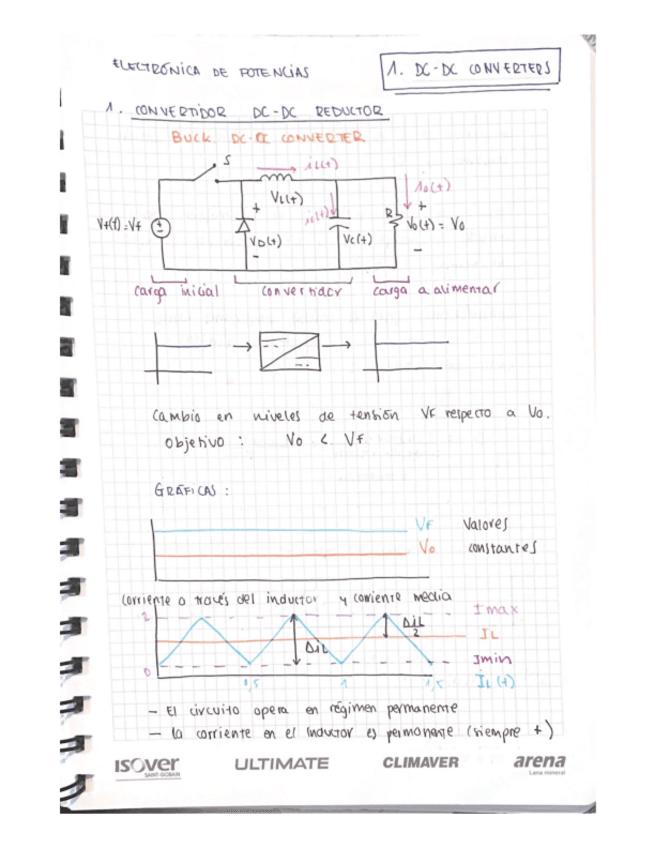 ELECTRÓNICA DE POTENCIAS
1. DC-DC CONVERTERS
1. CONVERTIDOR DC-DC REDUCTOR
BUCK DC-DC CONVERTER
S
iL(t)
VL(t)
ic(t)
io(t)
Vf(t)=Vf
+
VD(t)
-
Vc(t)
R
+
Vo(t) = Vo
-
carga inicial
convertidor
carga a alimentar
Cambio en niveles de tensión VF respecto a Vo.
Objetivo : Vo < Vf
GRÁFICAS :
VF Valores
Vo constantes
Corriente a través del inductor y corriente media
2
Imax
ΔiL
ΔiL/2
IL
0
Imin
1,5 1 1,5 iL(t)
- El circuito opera en régimen permanente
- la corriente en el inductor es permanente (siempre +)
isover
SAINT-GOBAIN
ULTIMATE
CLIMAVER
arena
Lana mineral